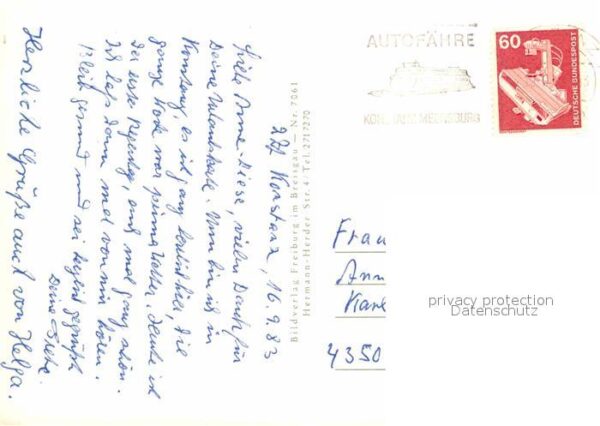 zZt Konstanz, 16.9.83
Liebe Anne-Liese, vielen Dank für
Deine Urlaubskarte. Nun bin ich in
Konstanz, es ist ganz hier, die
ganze Woche war prima Wetter. Heute ist
der erste Regentag, auch mal ganz schön.
Ich lass dann mal von mir hören.
Bleib gesund und sei gegrüßt
Deine
Herzliche Grüße auch von Helga.
Bildverlag Freiburg im Breisgau — Nr. 7061
Hermann-Herder Str. 4, Tel. 2717270
AUTOFÄHRE
KONSTANZ-MEERSBURG
60
DEUTSCHE BUNDESPOST
Frau
Ann
Kare
4350
privacy protection
Datenschutz